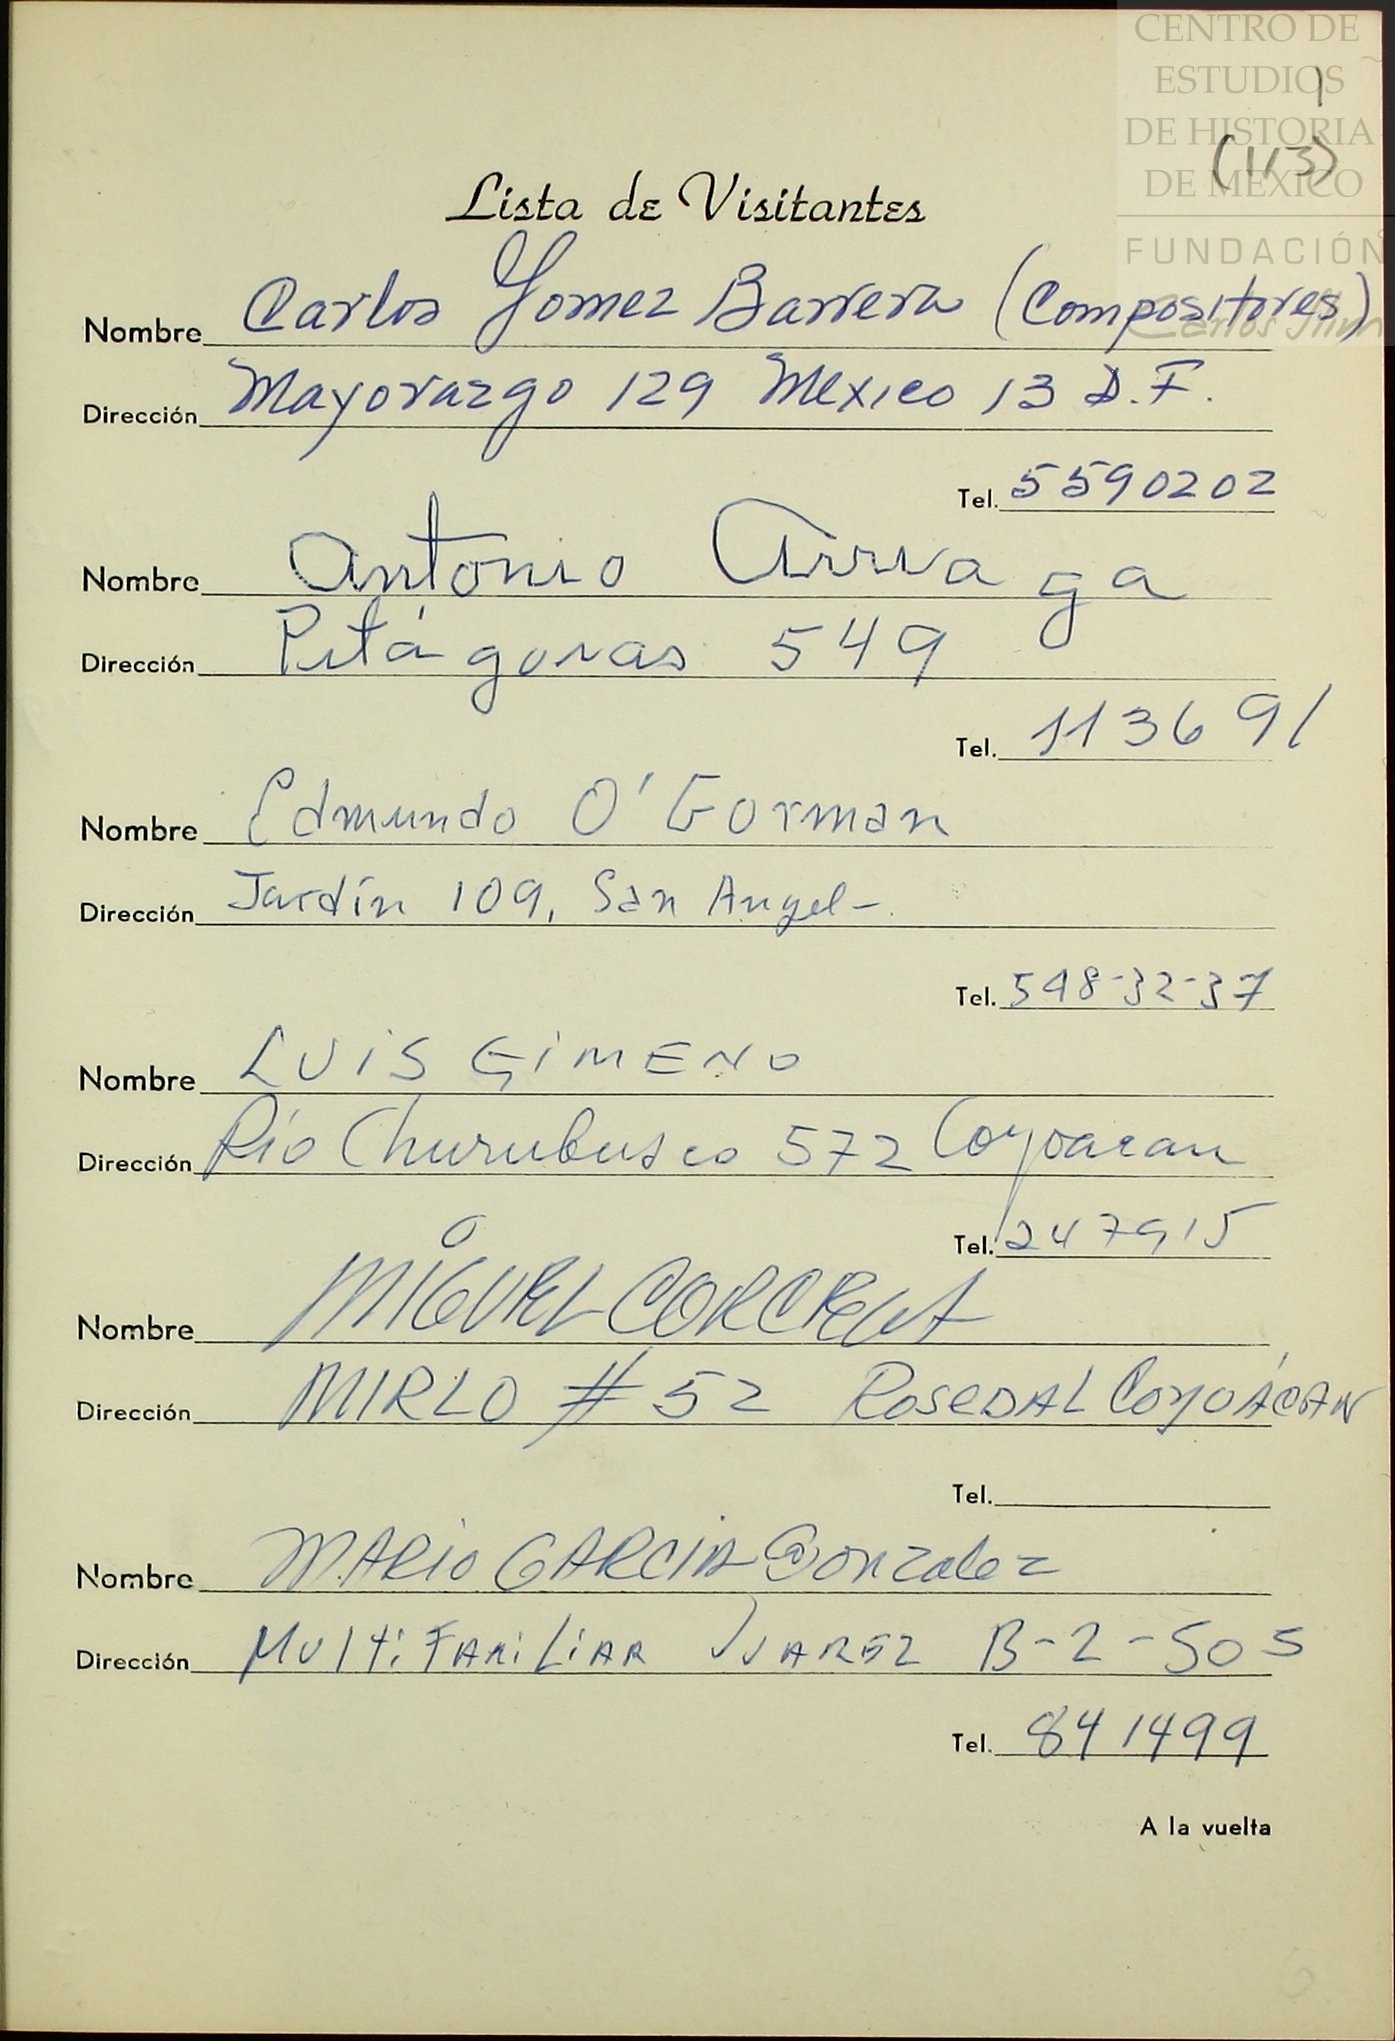 CENTRO DE
ESTUDIOS
DE HISTORIA
DE MÉXICO
FUNDACIÓN
Carlos Slim
1
(113)
Lista de Visitantes
Nombre Carlos Gomez Barrera (Compositores)
Dirección Mayorazgo 129 Mexico 13 D.F.
Tel. 5590202
Nombre Antonio Arriaga
Dirección Pitágoras 549
Tel. 113691
Nombre Edmundo O'Gorman
Dirección Jardín 109, San Angel-
Tel. 548-32-37
Nombre LUIS GIMENO
Dirección Río Churubusco 572 Coyoacan
Tel. 247915
Nombre MIGUEL CORCREGA
Dirección MIRLO # 52 ROSEDAL COYOÁCAN
Tel.
Nombre MARIO GARCIA Gonzalez
Dirección MULTIFAMILIAR JUAREZ B-2-505
Tel. 841499
A la vuelta
6